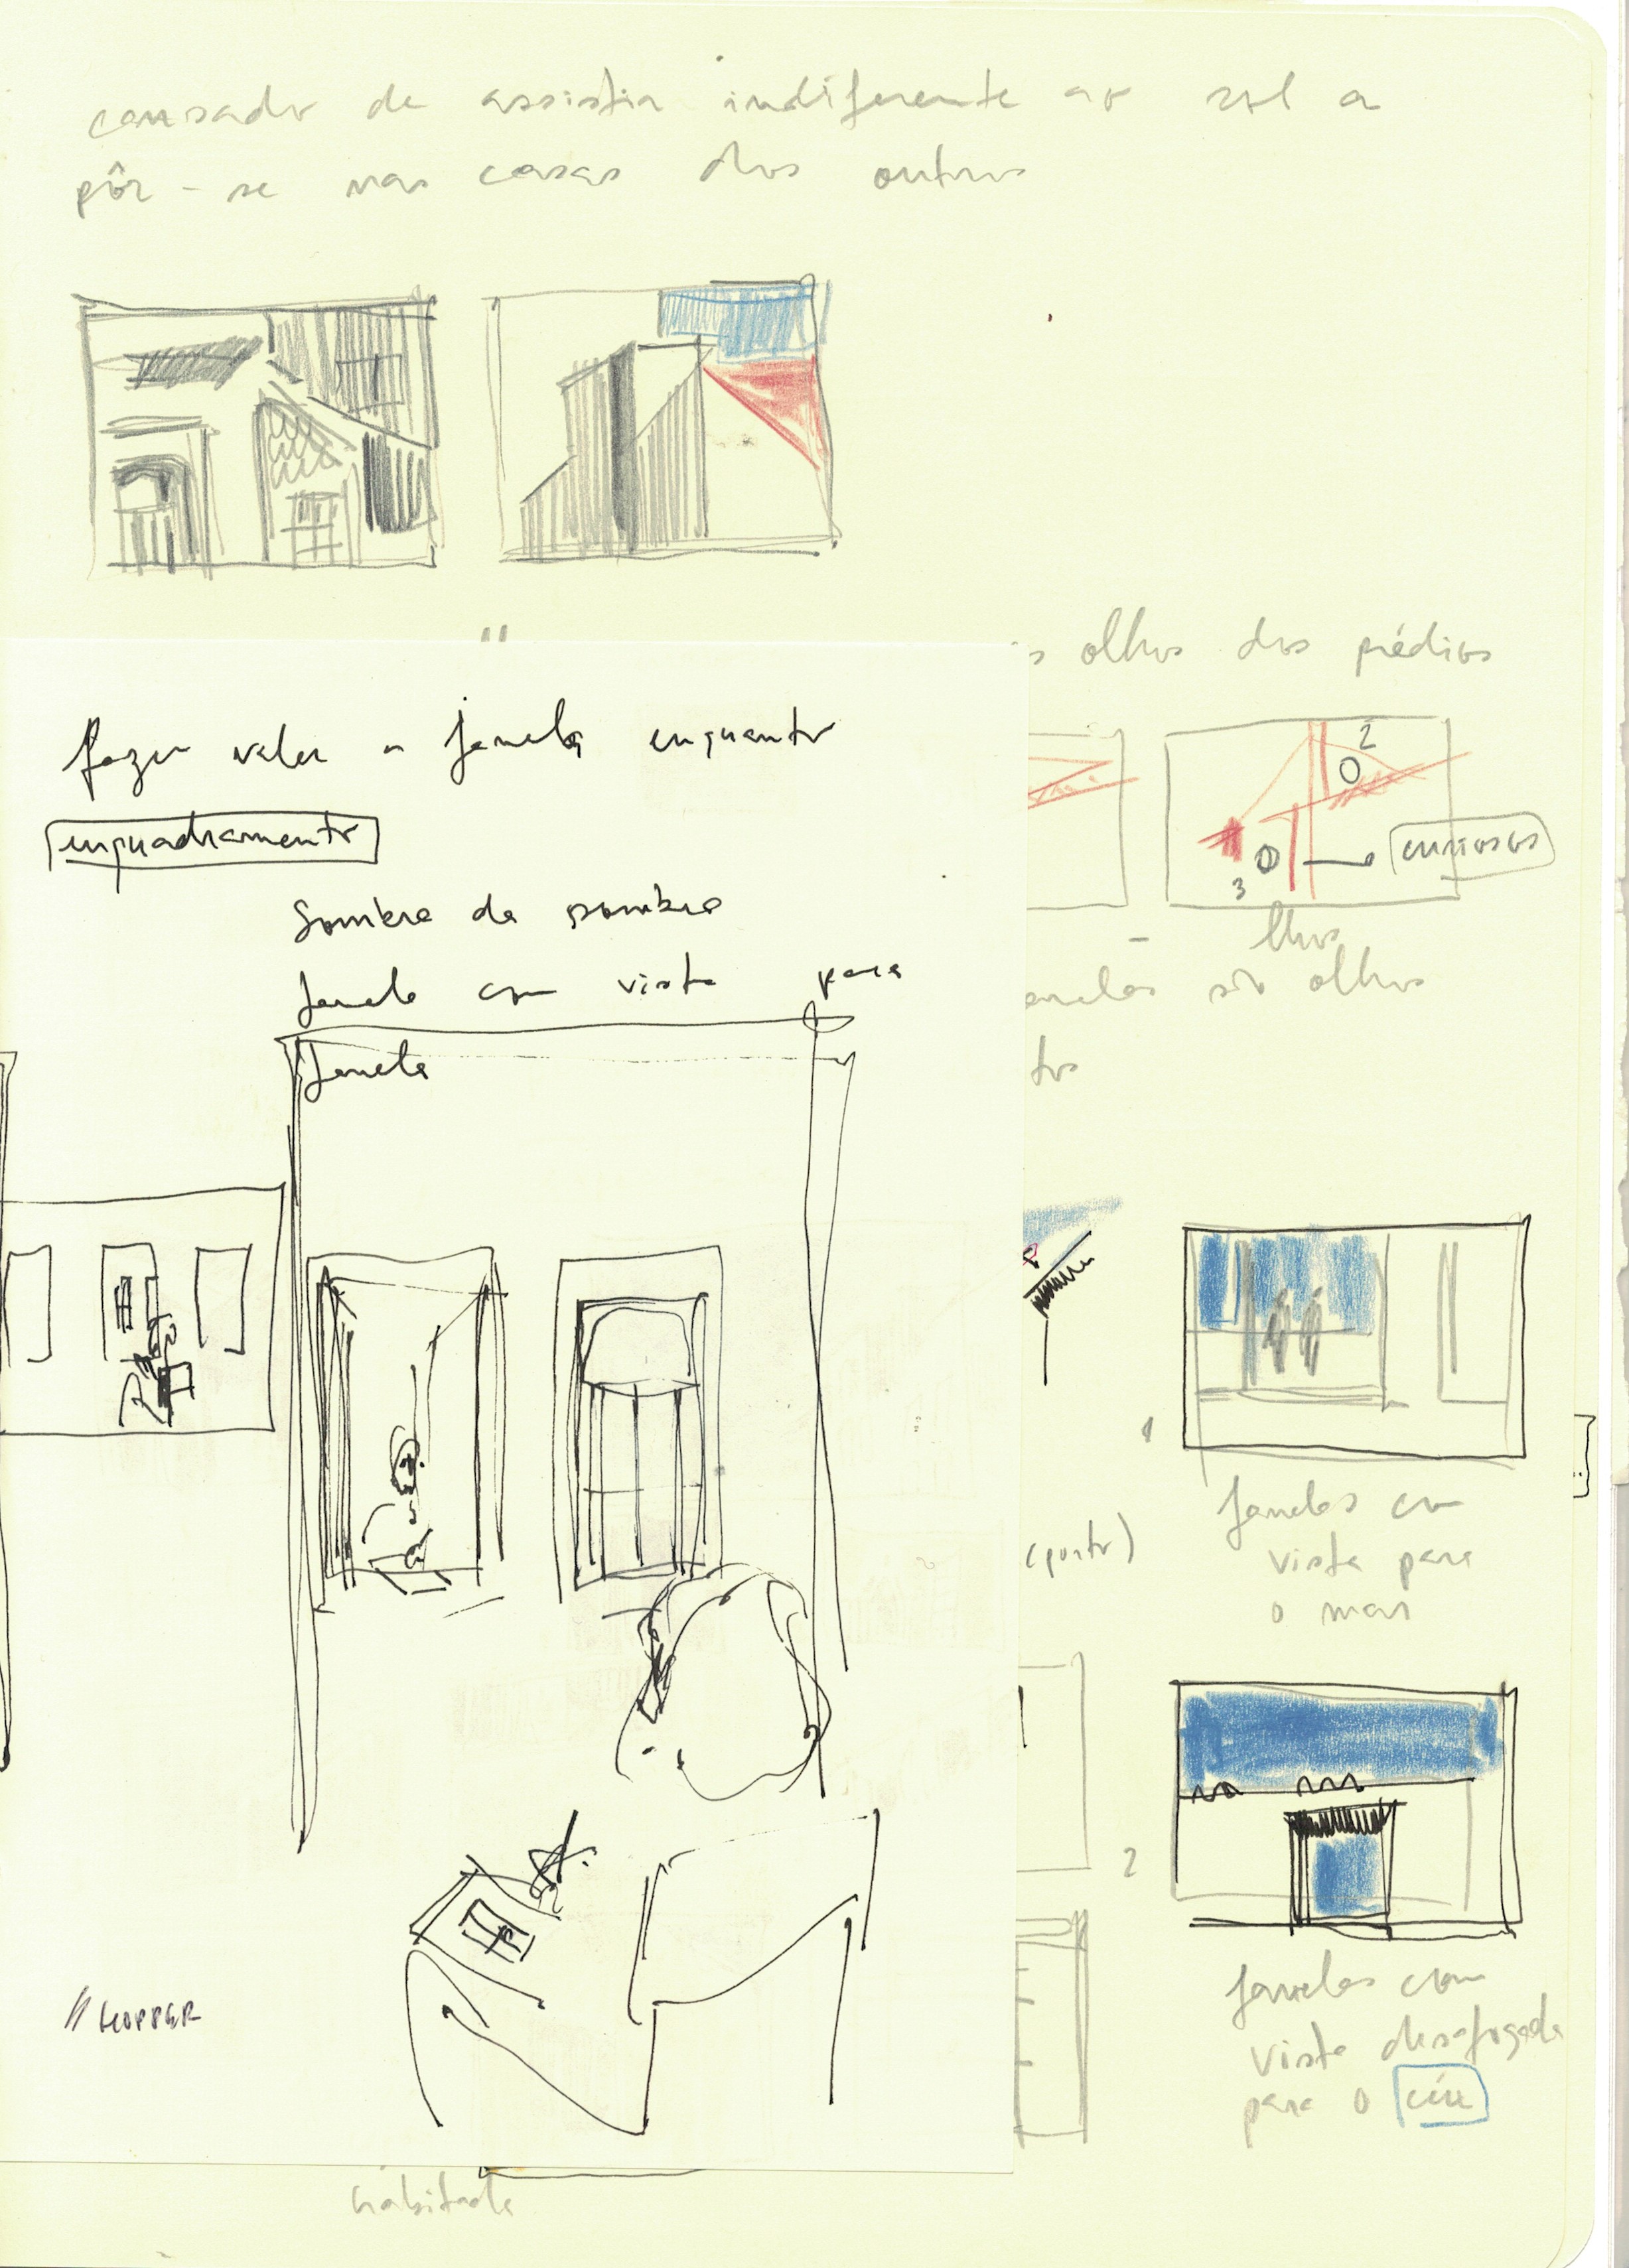 cansado de assistir indiferente ao sol a
pôr-se nas casas dos outros
olhos dos prédios
2
3
curiosos
lhos
são olhos
fazer valer a janela enquanto
enquadramento
Sombra da sombra
Janela com vista para
Janela
1
Janelas com
vista para
o mar
(porto)
2
Janelas com
vista desafogada
para o céu
// HOPPER
habitada